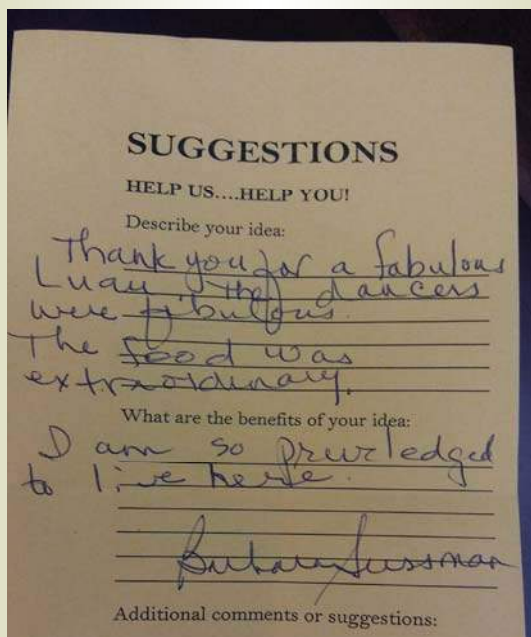 SUGGESTIONS
HELP US....HELP YOU!
Describe your idea:
Thank you for a fabulous
Luau the dancers
were fabulous.
The food was
extraordinary.
What are the benefits of your idea:
I am so priviledged
to live here.
Barbara Sussman
Additional comments or suggestions: